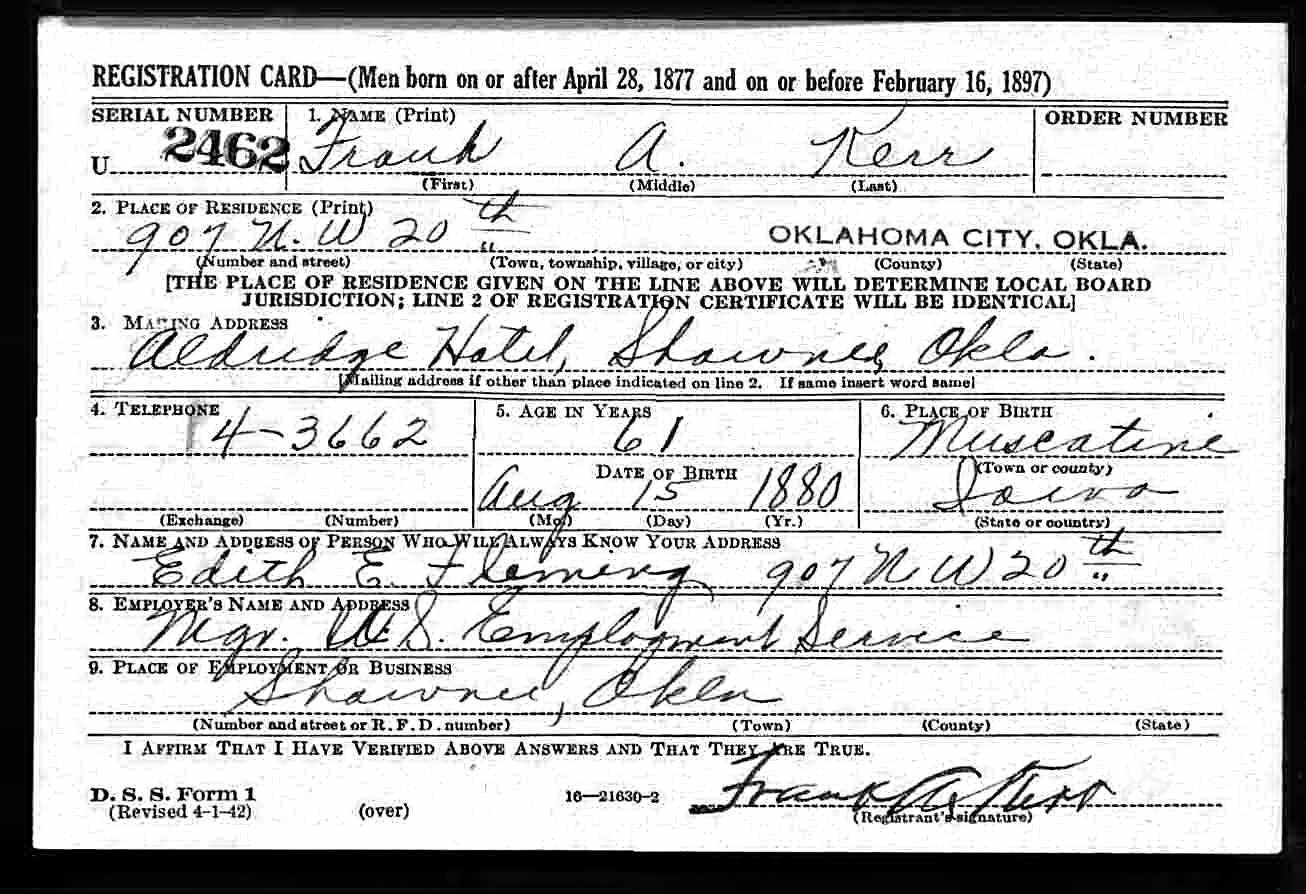 REGISTRATION CARD—(Men born on or after April 28, 1877 and on or before February 16, 1897)
SERIAL NUMBER 1. NAME (Print) ORDER NUMBER
U 2462 Frank A. Kerr
(First) (Middle) (Last)
2. PLACE OF RESIDENCE (Print)
907 N. W 20 th OKLAHOMA CITY, OKLA.
(Number and street) (Town, township, village, or city) (County) (State)
[THE PLACE OF RESIDENCE GIVEN ON THE LINE ABOVE WILL DETERMINE LOCAL BOARD
JURISDICTION; LINE 2 OF REGISTRATION CERTIFICATE WILL BE IDENTICAL]
3. MAILING ADDRESS
Aldridge Hotel, Shawnee, Okla.
[Mailing address if other than place indicated on line 2. If same insert word same]
4. TELEPHONE 5. AGE IN YEARS 6. PLACE OF BIRTH
4-3662 61 Muscatine
DATE OF BIRTH (Town or county)
Aug 15 1880 Iowa
(Exchange) (Number) (Mo.) (Day) (Yr.) (State or country)
7. NAME AND ADDRESS OF PERSON WHO WILL ALWAYS KNOW YOUR ADDRESS
Edith E. Fleming 907 N W 20 th
8. EMPLOYER'S NAME AND ADDRESS
Mgr. U.S. Employment Service
9. PLACE OF EMPLOYMENT OR BUSINESS
Shawnee, Okla
(Number and street or R. F. D. number) (Town) (County) (State)
I AFFIRM THAT I HAVE VERIFIED ABOVE ANSWERS AND THAT THEY ARE TRUE.
Frank A. Kerr
D. S. S. Form 1 16—21630-2
(Revised 4-1-42) (over) (Registrant's signature)